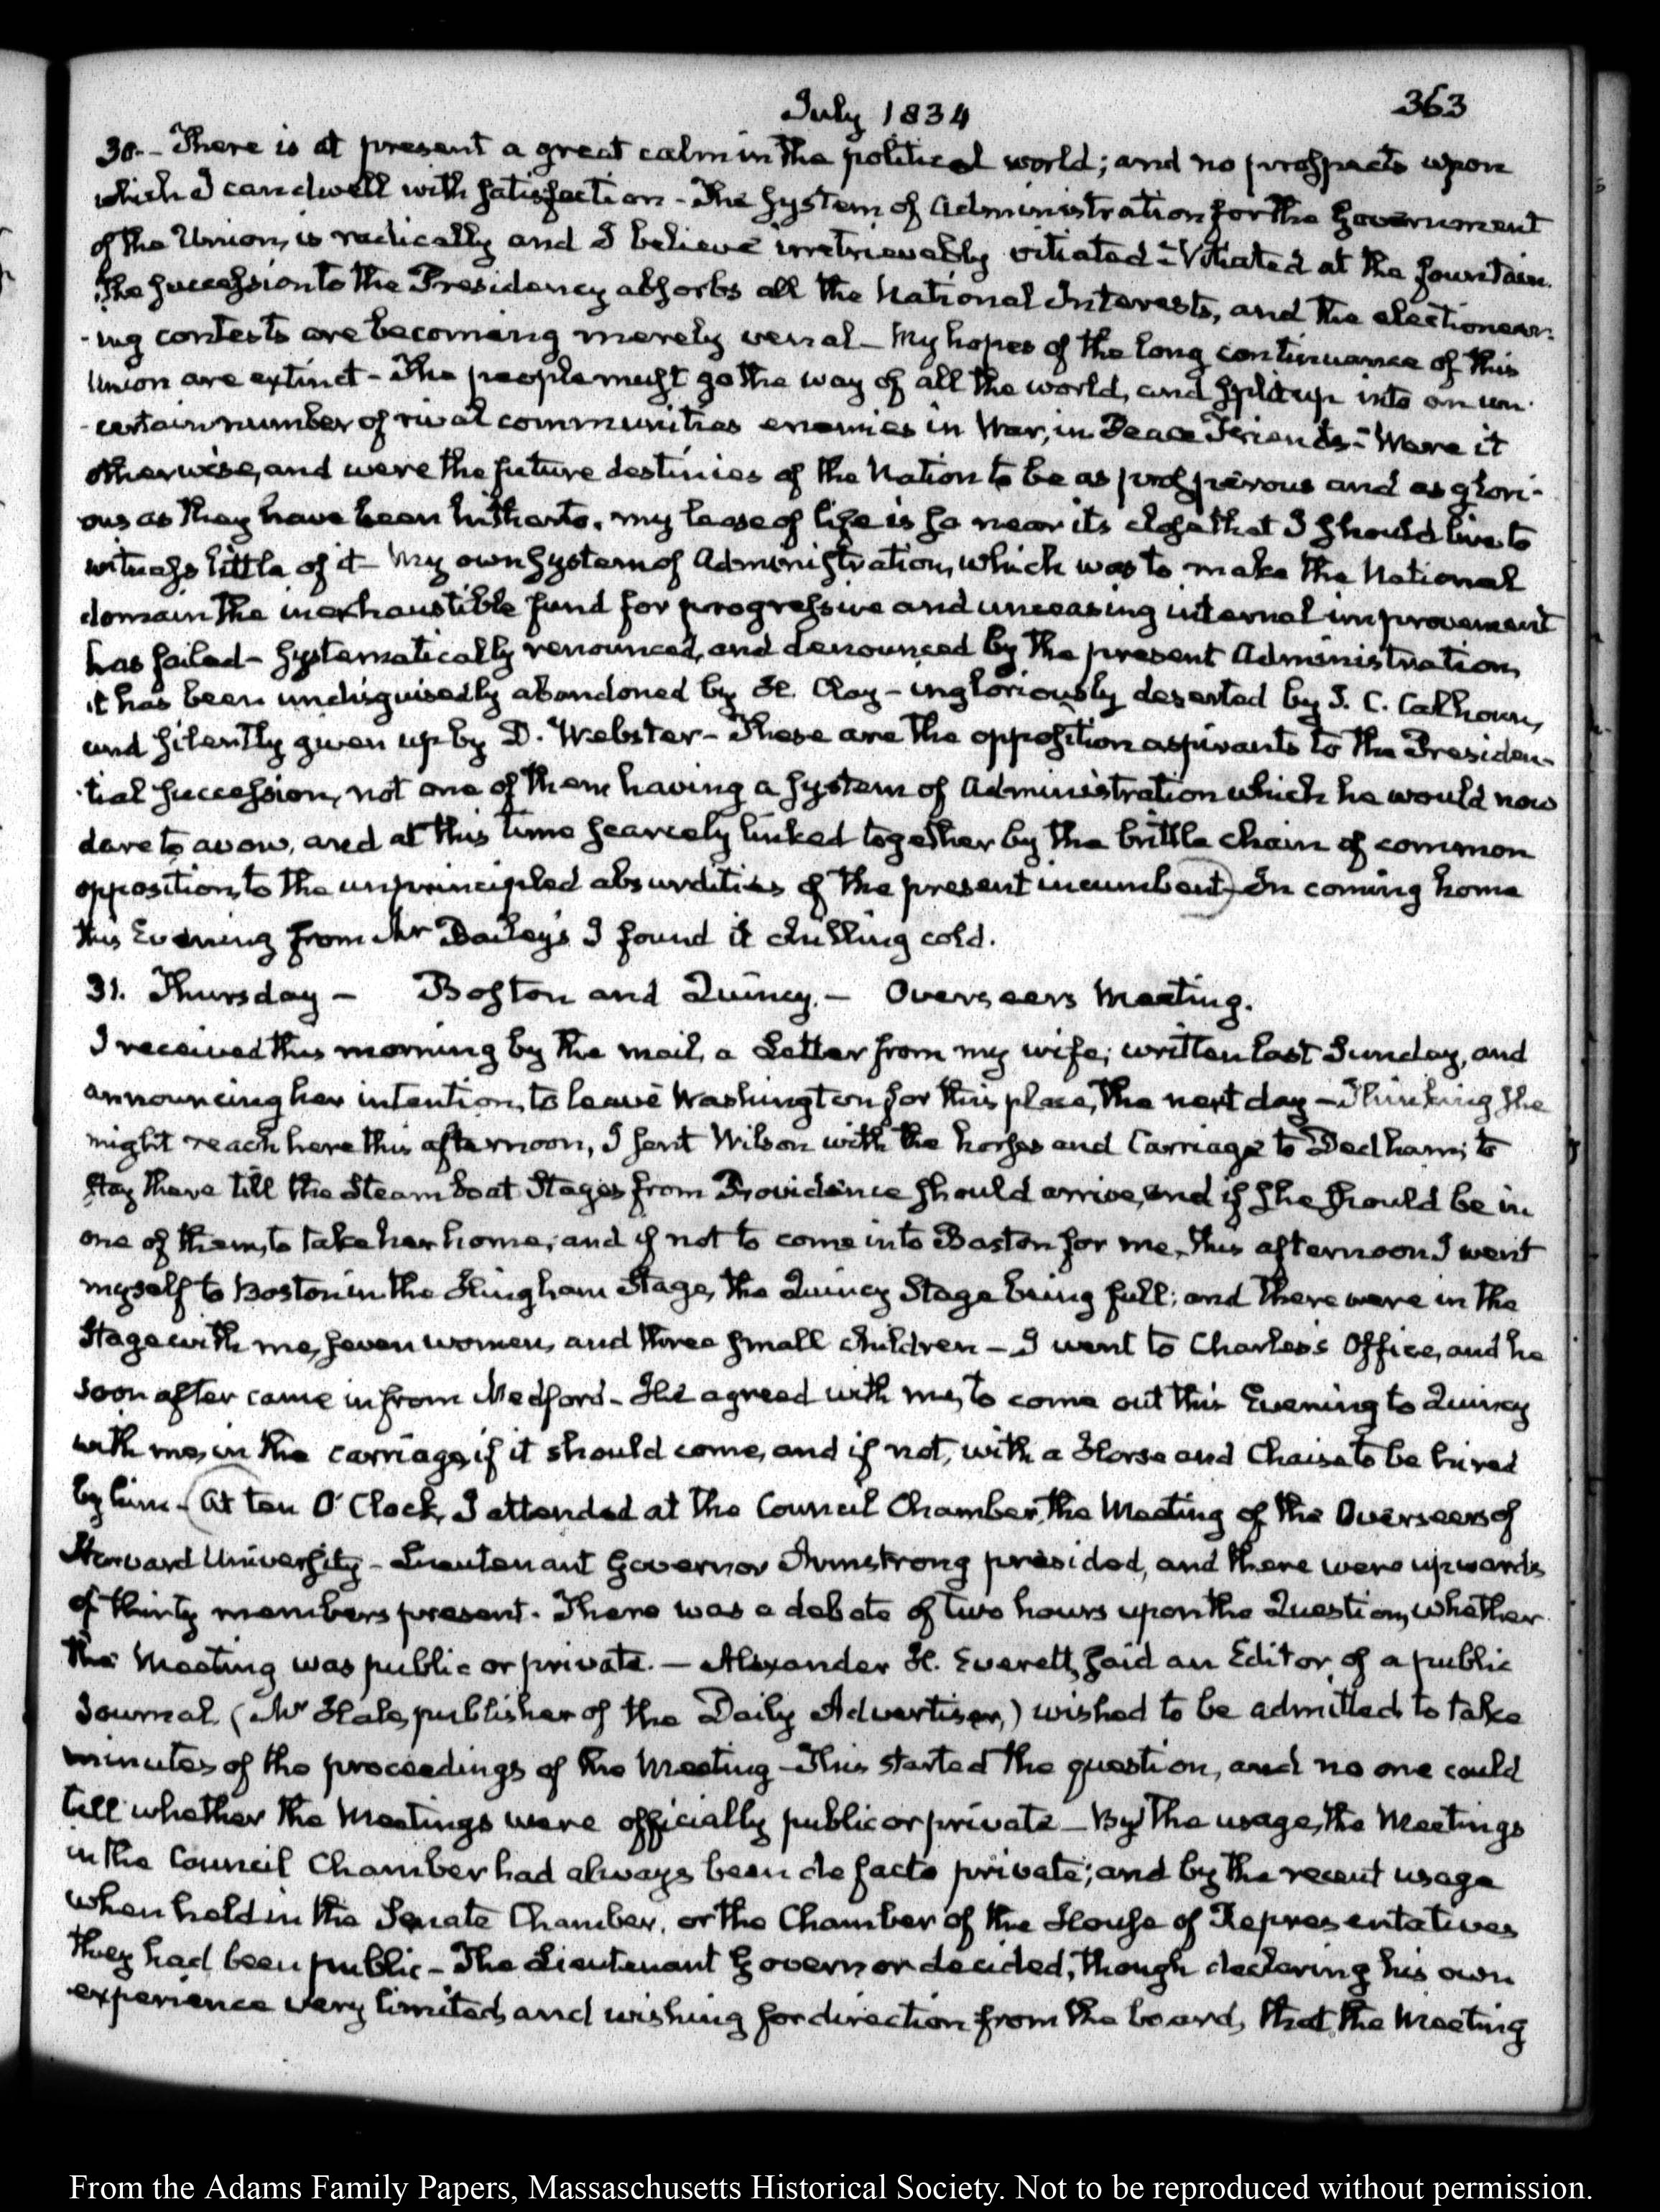 July 1834
363
30.- There is at present a great calm in the political world; and no prospects upon
which I can dwell with satisfaction - The System of Administration for the Government
of the Union, is radically and I believe irretrievably vitiated - Vitiated at the fountain.
The succession to the Presidency absorbs all the National Interests, and the electioneer-
-ing contests are becoming merely venal - My hopes of the long continuance of this
Union are extinct - The people must go the way of all the world, and split up into an un-
-certain number of rival communities enemies in War, in Peace Friends - Were it
otherwise, and were the future destinies of the Nation to be as prosperous and as glori-
ous as they have been hitherto, my lease of life is so near its close that I should live to
witness little of it - My own System of Administration, which was to make the National
domain the inexhaustible fund for progressive and unceasing internal improvement
has failed - Systematically renounced, and denounced by the present Administration,
it has been undisguisedly abandoned by H. Clay - ingloriously deserted by J. C. Calhoun,
and silently given up by D. Webster - These are the opposition aspirants to the Presiden-
-tial succession, not one of them having a system of Administration which he would now
dare to avow, and at this time scarcely linked together by the brittle chain of common
opposition, to the unprincipled absurdities of the present incumbent) - In coming home
this Evening from Mr Bailey's I found it chilling cold.
31. Thursday - Boston and Quincy. - Overseers Meeting.
I received this morning by the mail, a Letter from my wife; written last Sunday, and
announcing her intention, to leave Washington for this place, the next day - Thinking she
might reach here this afternoon, I sent Wilson with the horses and Carriage to Dedham; to
stay there till the Steam boat Stages from Providence should arrive, and if she should be in
one of them, to take her home; and if not to come into Boston for me, this afternoon I went
myself to Boston in the Hingham Stage, the Quincy Stage being full; and there were in the
Stage with me, seven women, and three small children - I went to Charles's Office, and he
soon after came in from Medford - He agreed with me, to come out this Evening to Quincy
with me, in the carriage, if it should come, and if not, with a Horse and Chaise to be hired
by him - (At ten O'Clock, I attended at the Council Chamber, the Meeting of the Overseers of
Harvard University - Lieutenant Governor Armstrong presided, and there were upwards
of thirty members present. There was a debate of two hours upon the Question, whether
the Meeting was public or private. - Alexander H. Everett, said an Editor, of a public
Journal, (Mr Hale, publisher of the Daily Advertiser,) wished to be admitted to take
minutes of the proceedings of the Meeting - This started the question, and no one could
tell whether the Meetings were officially public or private - By the usage, the Meetings
in the Council Chamber had always been de facto private; and by the recent usage
when held in the Senate Chamber, or the Chamber of the House of Representatives
they had been public - The Lieutenant Governor decided, though declaring his own
experience very limited, and wishing for direction from the board, that the Meeting
From the Adams Family Papers, Massachusetts Historical Society. Not to be reproduced without permission.